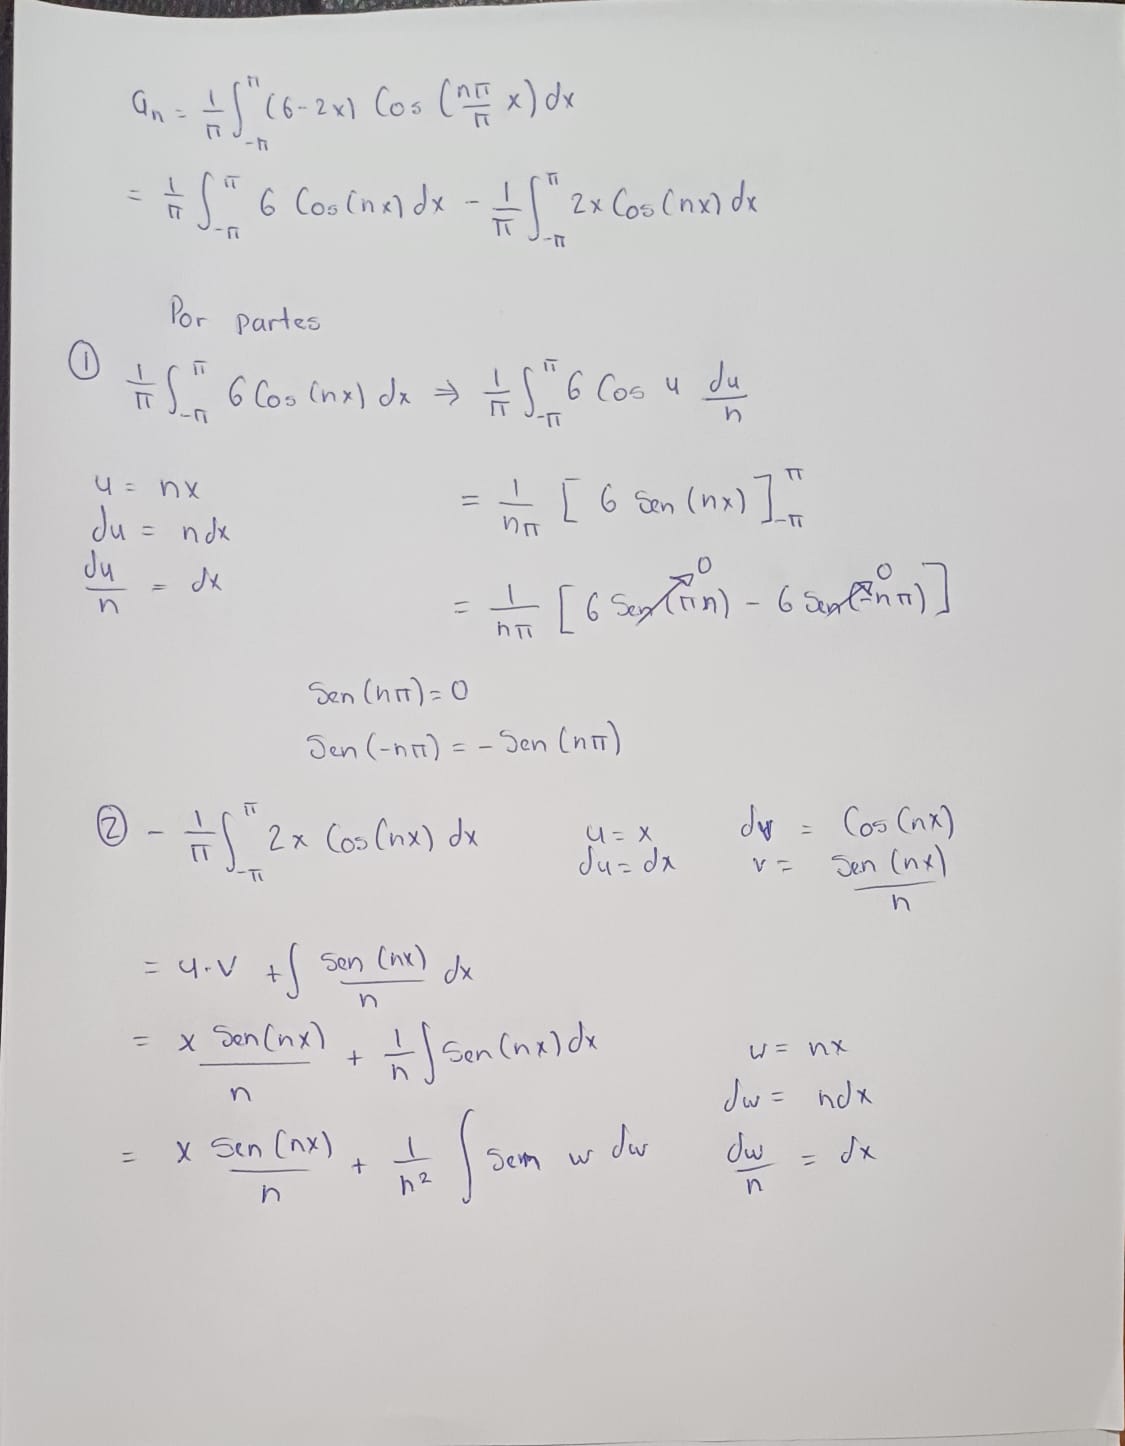 aₙ = 1/π ∫_{-π}^{π} (6-2x) Cos (nπ/π x) dx
= 1/π ∫_{-π}^{π} 6 Cos(nx) dx - 1/π ∫_{-π}^{π} 2x Cos(nx) dx
Por partes
① 1/π ∫_{-π}^{π} 6 Cos (nx) dx ⇒ 1/π ∫_{-π}^{π} 6 Cos u du/n
u = nx
du = ndx
du/n = dx
= 1/nπ [6 Sen (nx)]_{-π}^{π}
= 1/nπ [6 Sen(πn)→0 - 6 Sen(-nπ)→0]
Sen (nπ) = 0
Sen (-nπ) = - Sen (nπ)
② - 1/π ∫_{-π}^{π} 2x Cos(nx) dx
u = x
du = dx
dv = Cos (nx)
v = Sen (nx)/n
= u·v + ∫ Sen (nx)/n dx
= x Sen(nx)/n + 1/n ∫ Sen (nx) dx
w = nx
dw = ndx
dw/n = dx
= x Sen (nx)/n + 1/n² ∫ Sem w dw